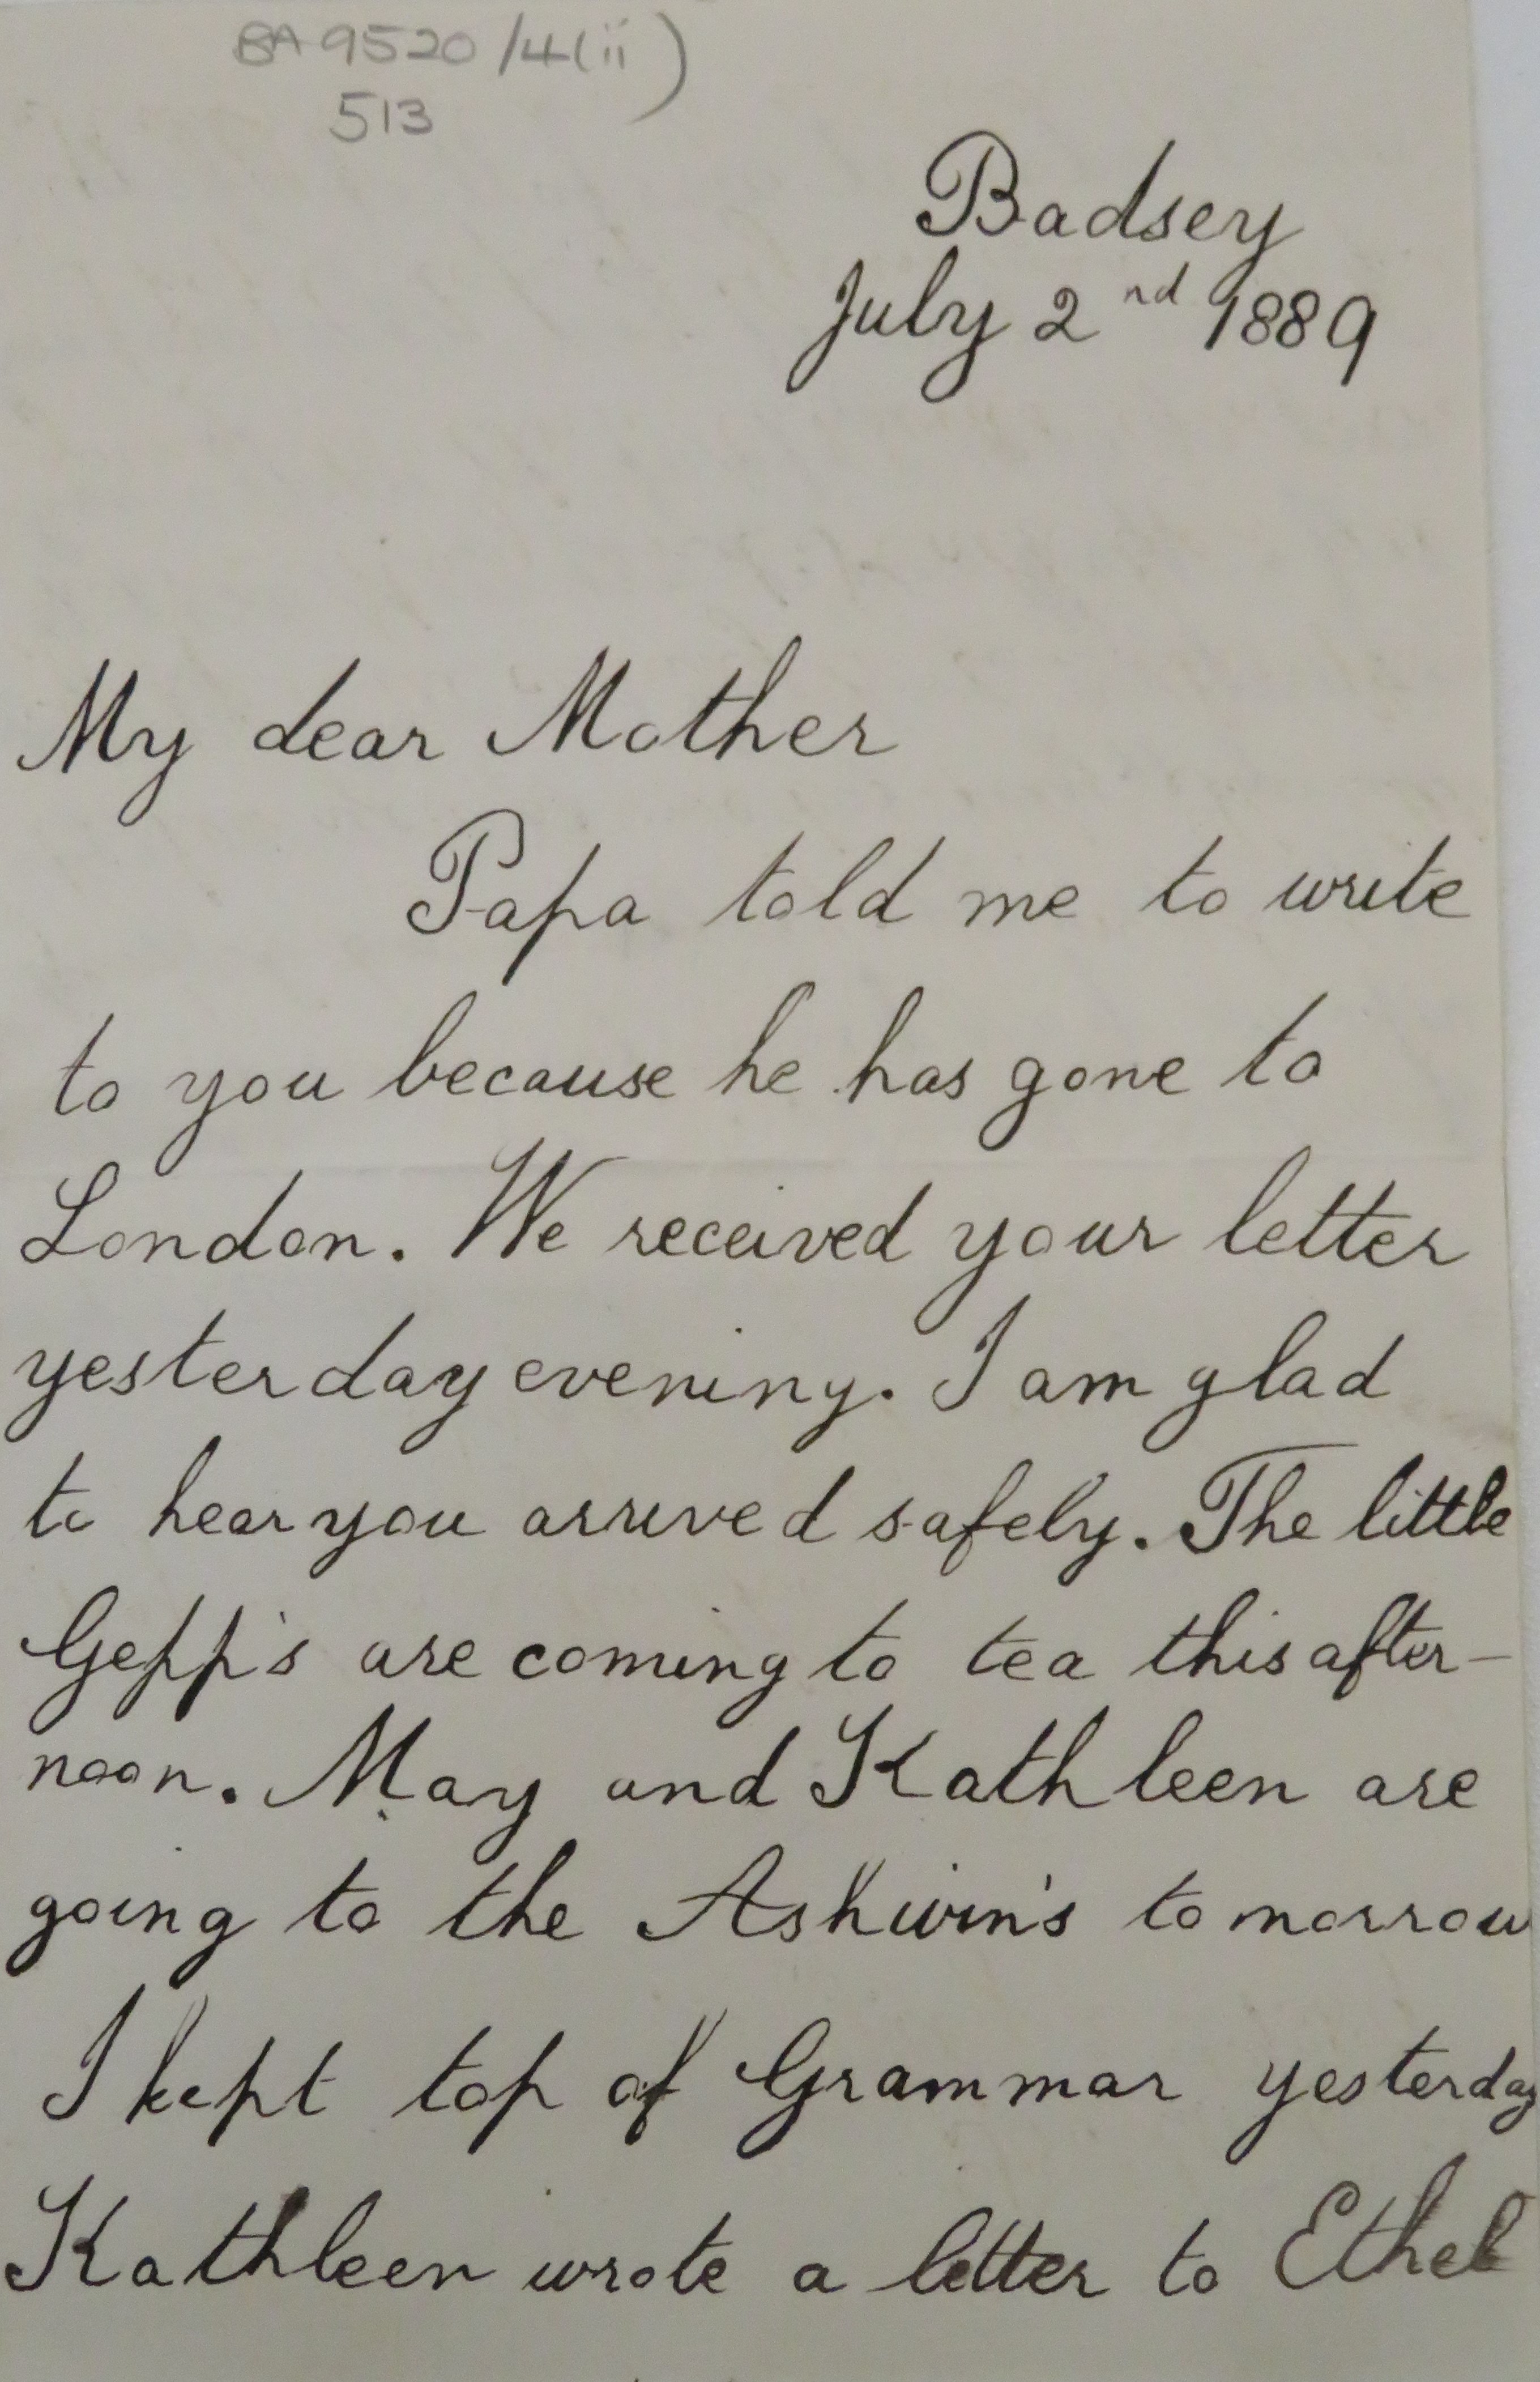 BA 9520/4(ii)
513
Badsey
July 2nd 1889
My dear Mother
Papa told me to write
to you because he has gone to
London. We received your letter
yesterday evening. I am glad
to hear you arrived safely. The little
Gepp's are coming to tea this after-
noon. May and Kathleen are
going to the Ashwin's tomorrow
I kept top of Grammar yesterday
Kathleen wrote a letter to Ethel